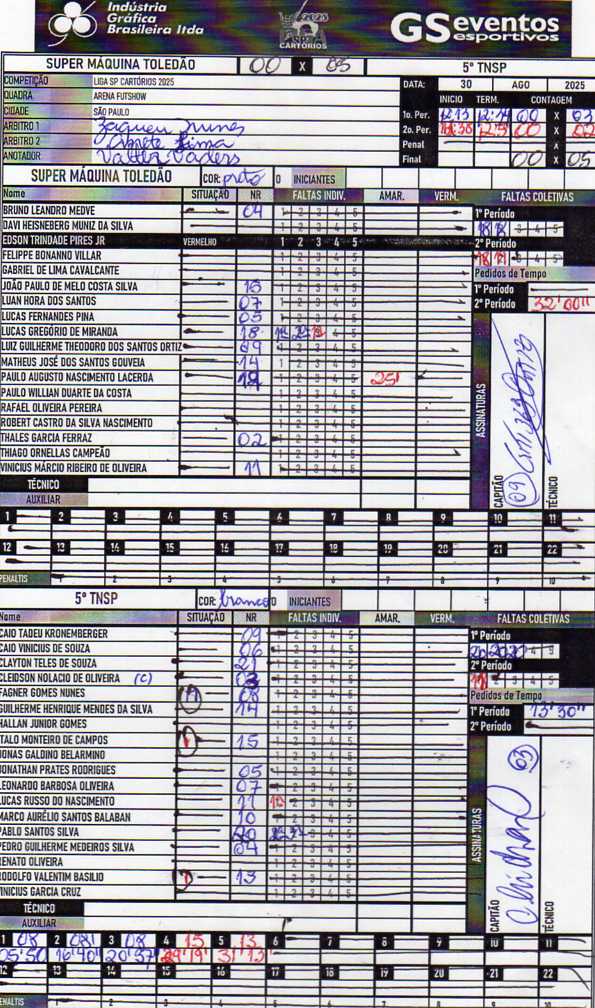 Indústria
Gráfica
Brasileira ltda
2025
SP
CARTÓRIOS
GSeventos
esportivos
SUPER MÁQUINA TOLEDÃO 00 X 05 5º TNSP
COMPETIÇÃO LIGA SP CARTÓRIOS 2025
QUADRA ARENA FUTSHOW
CIDADE SÃO PAULO
ARBITRO 1
ARBITRO 2
ANOTADOR
DATA: 30 AGO 2025
INICIO TERM. CONTAGEM
1o. Per. 00 X 03
2o. Per. 00 X 02
Penal X
Final 00 X 05
SUPER MÁQUINA TOLEDÃO COR: preto 0 INICIANTES
Nome SITUAÇÃO NR FALTAS INDIV. AMAR. VERM. FALTAS COLETIVAS
BRUNO LEANDRO MEDVE 04 1 2 3 4 5
DAVI HEISNEBERG MUNIZ DA SILVA 1 2 3 4 5
EDSON TRINDADE PIRES JR VERMELHO 1 2 3 4 5
FELIPPE BONANNO VILLAR 1 2 3 4 5
GABRIEL DE LIMA CAVALCANTE 1 2 3 4 5
JOÃO PAULO DE MELO COSTA SILVA 1 2 3 4 5
LUAN HORA DOS SANTOS 07 1 2 3 4 5
LUCAS FERNANDES PINA 05 1 2 3 4 5
LUCAS GREGÓRIO DE MIRANDA 18 4 5
LUIZ GUILHERME THEODORO DOS SANTOS ORTIZ 09 1 2 3 4 5
MATHEUS JOSÉ DOS SANTOS GOUVEIA 14 1 2 3 4 5
PAULO AUGUSTO NASCIMENTO LACERDA 1 2 3 4 5 25'
PAULO WILLIAN DUARTE DA COSTA 1 2 3 4 5
RAFAEL OLIVEIRA PEREIRA 1 2 3 4 5
ROBERT CASTRO DA SILVA NASCIMENTO 1 2 3 4 5
THALES GARCIA FERRAZ 02 1 2 3 4 5
THIAGO ORNELLAS CAMPEÃO 1 2 3 4 5
VINICIUS MÁRCIO RIBEIRO DE OLIVEIRA 11 1 2 3 4 5
1º Período
18 18 3 4 5
2º Período
3 4 5
Pedidos de Tempo
1º Período
2º Período 32'00"
ASSINATURAS
CAPITÃO
09
TÉCNICO
TÉCNICO
AUXILIAR
1 2 3 4 5 6 7 8 9 10 11
12 13 14 15 16 17 18 19 20 21 22
PENALTIS 1 2 3 4 5 6 7 8 9 10
5º TNSP COR: branco 0 INICIANTES
Nome SITUAÇÃO NR FALTAS INDIV. AMAR. VERM. FALTAS COLETIVAS
CAIO TADEU KRONEMBERGER 09 1 2 3 4 5
CAIO VINICIUS DE SOUZA 06 1 2 3 4 5
CLAYTON TELES DE SOUZA 21 1 2 3 4 5
CLEIDSON NOLACIO DE OLIVEIRA (C) 03 1 2 3 4 5
FAGNER GOMES NUNES 08 1 2 3 4 5
GUILHERME HENRIQUE MENDES DA SILVA 14 1 2 3 4 5
HALLAN JUNIOR GOMES 1 2 3 4 5
ITALO MONTEIRO DE CAMPOS 15 1 2 3 4 5
JONAS GALDINO BELARMINO 1 2 3 4 5
JONATHAN PRATES RODRIGUES 05 1 2 3 4 5
LEONARDO BARBOSA OLIVEIRA 07 1 2 3 4 5
LUCAS RUSSO DO NASCIMENTO 11 2 3 4 5
MARCO AURÉLIO SANTOS BALABAN 10 1 2 3 4 5
PABLO SANTOS SILVA 20 3 4 5
PEDRO GUILHERME MEDEIROS SILVA 04 1 2 3 4 5
RENATO OLIVEIRA 1 2 3 4 5
RODOLFO VALENTIM BASILIO 13 1 2 3 4 5
VINICIUS GARCIA CRUZ 1 2 3 4 5
1º Período
20 20 4 5
2º Período
2 3 4 5
Pedidos de Tempo
1º Período 13'30"
2º Período
ASSINATURAS
CAPITÃO
03
TÉCNICO
TÉCNICO
AUXILIAR
1 08 2 08 3 08 4 15 5 13 6 7 8 9 10 11
05'50 16'40" 20'37 29'19" 31'13"
12 13 14 15 16 17 18 19 20 21 22
PENALTIS 1 2 3 4 5 6 7 8 9 10